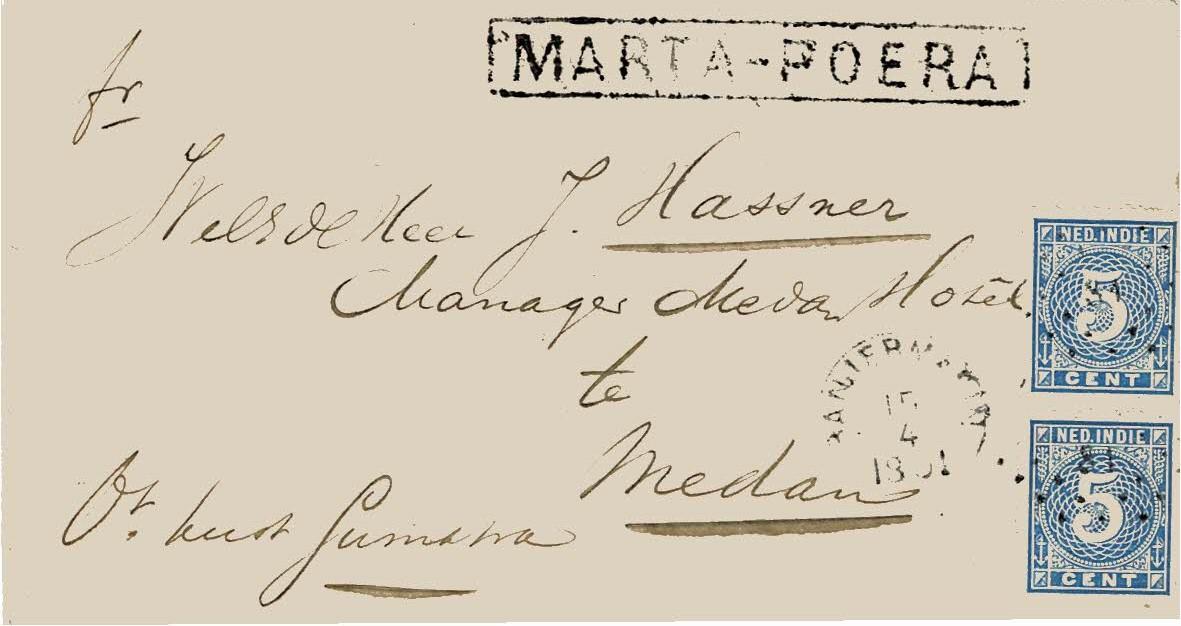 MARTA-POERA
fr
WelEdelHeer J. Hassner
Manager Medan Hotel.
te
Medan
Ot. kust Sumatra
15
4
NED. INDIE
5
CENT
NED. INDIE
5
CENT